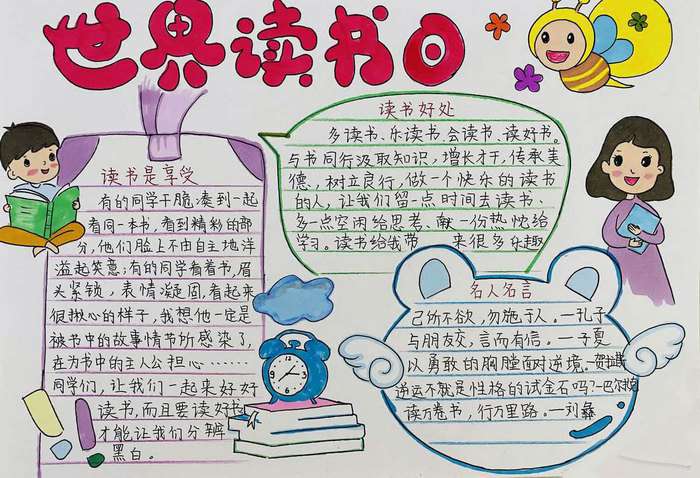 世界读书日
读书是享受
有的同学干脆凑到一起
看同一本书,看到精彩的部
分,他们脸上不由自主地洋
溢起笑意;有的同学看着书,眉
头紧锁,表情凝固,看起来
很揪心的样子,我想他一定是
被书中的故事情节所感染了,
在为书中的主人公担心……
同学们,让我们一起来好好
读书,而且要读好书
才能让我们分辨
黑白。
读书好处
多读书、乐读书、会读书、读好书。
与书同行汲取知识,增长才干,传承美
德,树立良行,做一个快乐的读书
的人,让我们留一点时间去读书、
多一点空闲给思考、献一份热忱给
学习。读书给我带 来很多乐趣
名人名言
己所不欲,勿施于人。一孔子
与朋友交,言而有信。一子夏
以勇敢的胸膛面对逆境。一贺拉斯
逆运不就是性格的试金石吗?一巴尔扎
读万卷书,行万里路。一刘彝